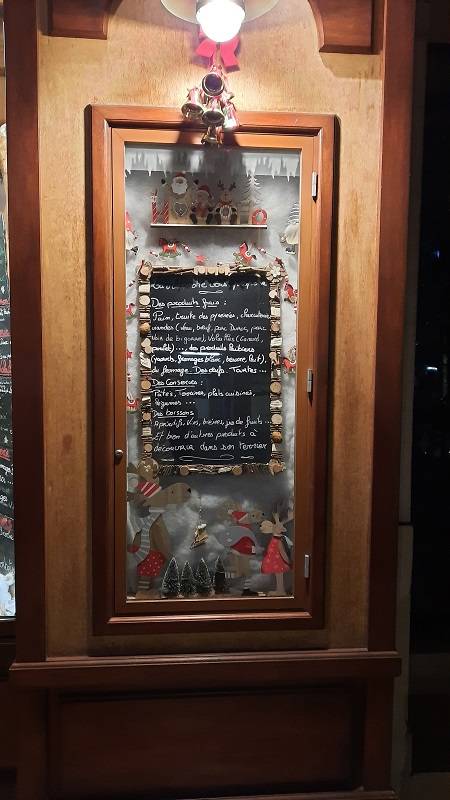 vous propose
Des produits frais :
Pain, truite des pyrénées, charcuterie,
viandes (veau, bœuf, porc Duroc, porc
noir de bigorre), Volailles (canard,
poulet)..., des produits laitiers
(yaourts, fromages blanc, beurre, lait),
du fromage. Des œufs. Tourtes...
Des conserves :
Pâtés, Terrines, plats cuisinés,
légumes ...
Des boissons
Apéritifs, Vins, bières, jus de fruits...
Et bien d'autres produits à
découvrir dans son Terroir